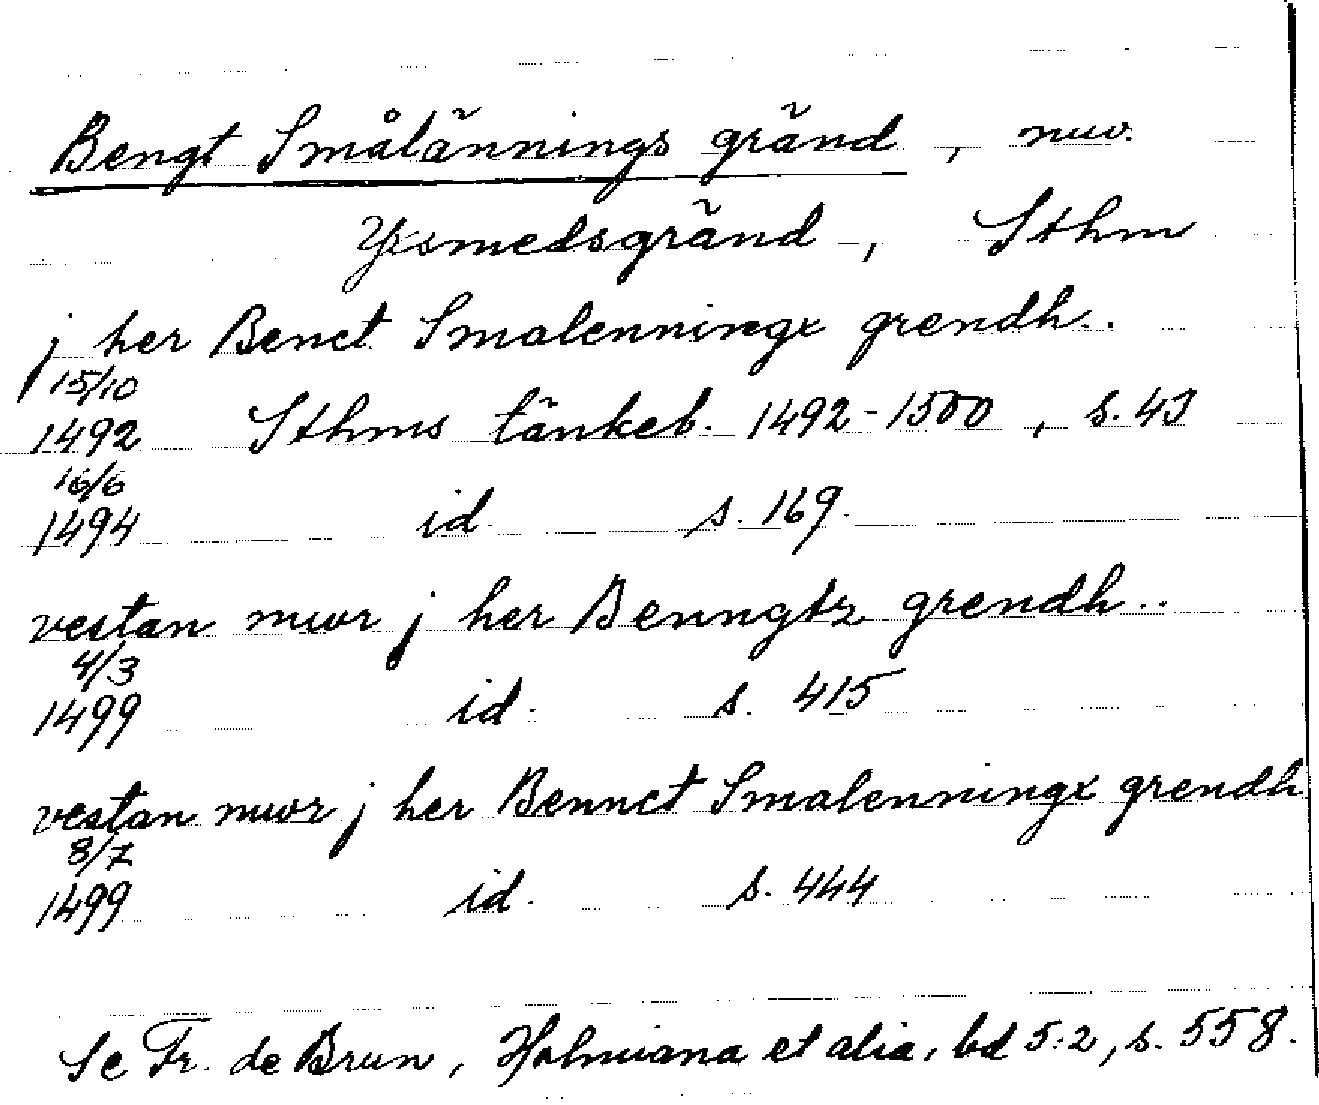 Bengt Smålännings gränd, nuv.
Yxsmedsgränd, Sthm
j her Benct Smalenningx grendh..
15/10
1492 Sthms tänkeb. 1492-1500, s. 43
16/6
1494 id. s. 169.
vestan mwr j her Benngtz grendh..
4/3
1499 id. s. 415
vestan mwr j her Bennct Smalenningx grendh
8/7
1499 id. s. 444
Se Fr. de Brun, Holmiana et alia, bd 5:2, s. 558.